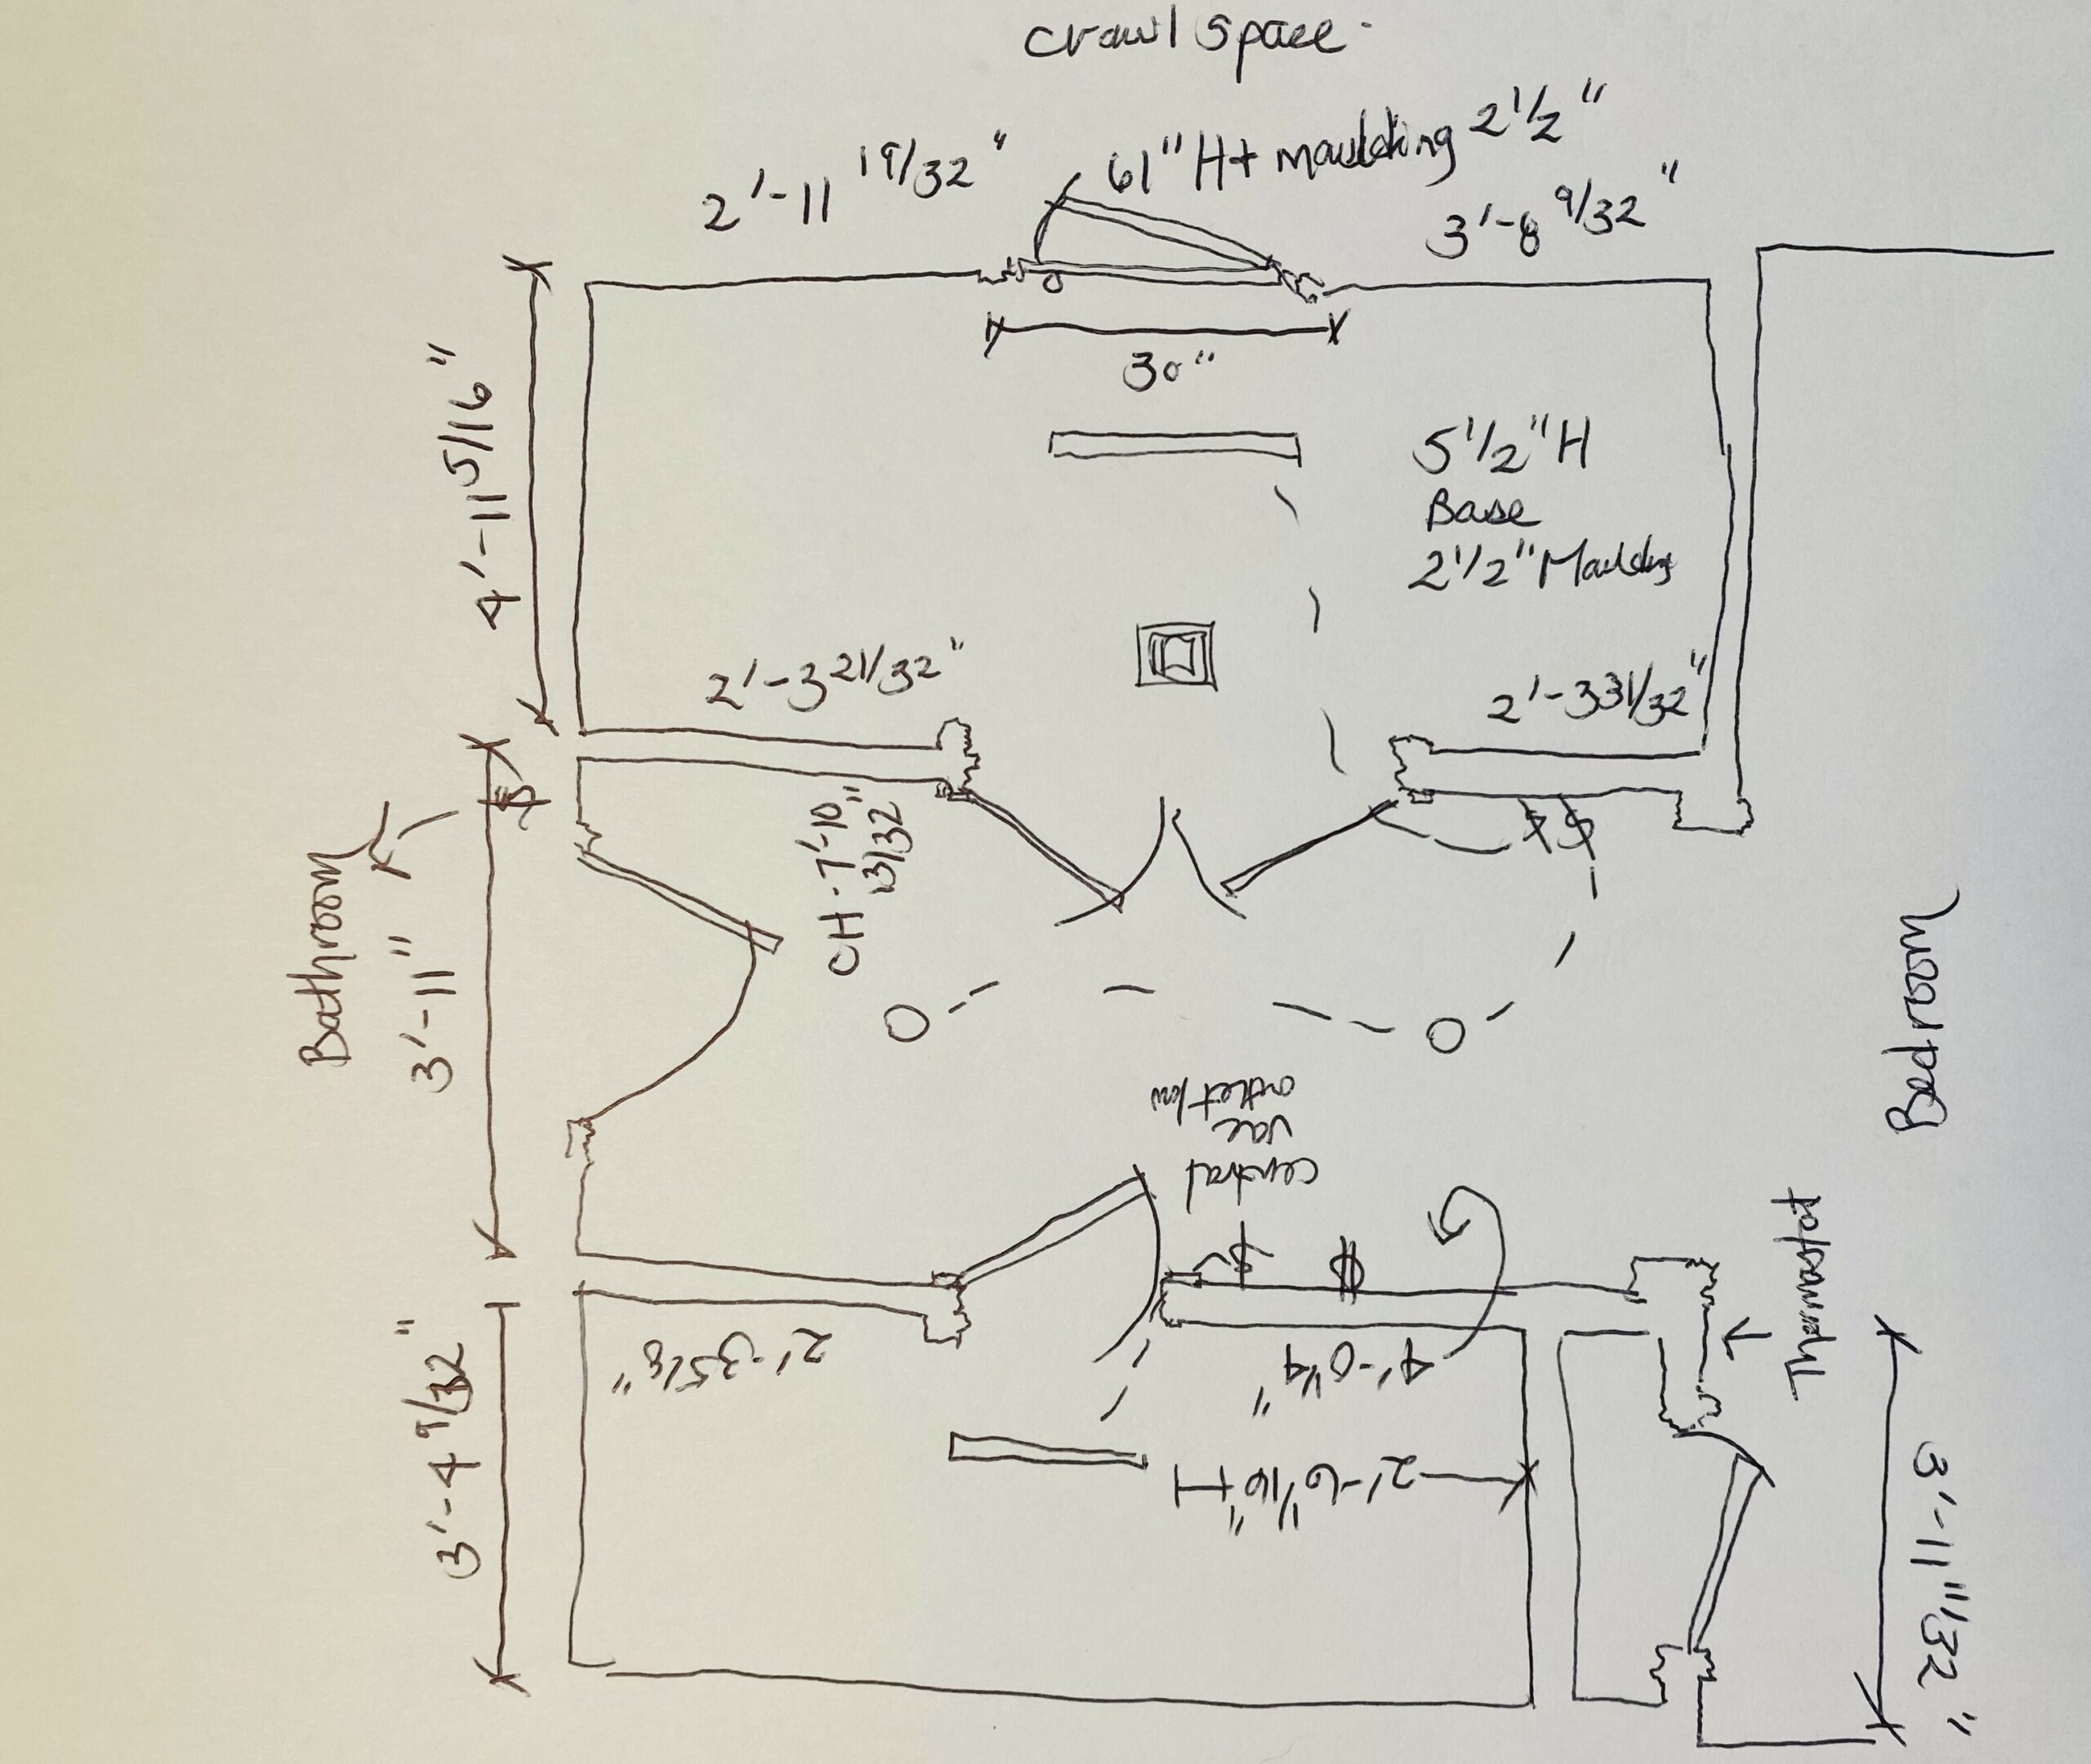 crawl space
61" H+ moulding 2 1/2"
2'-11 19/32"
3'-8 9/32"
30"
4'-11 5/16"
5 1/2" H
Base
2 1/2" Moulding
2'-3 21/32"
2'-3 31/32"
CH-7'-10
13/32"
Bathroom
3'-11"
Bedroom
central
vac
outlet low
Thermostat
2'-3 5/8"
4'-0 1/4"
3'-4 9/32"
2'-6 1/16" H
3'-11 11/32"